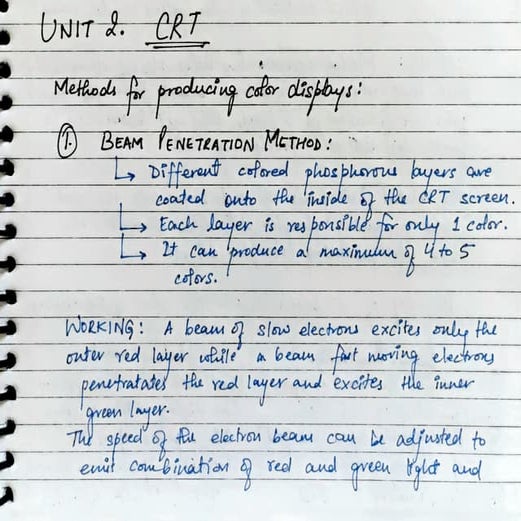 UNIT 2. CRT
Methods for producing color displays:
1. BEAM PENETRATION METHOD:
↳ Different colored phosphorous layers are
coated onto the inside of the CRT screen.
↳ Each layer is responsible for only 1 color.
↳ It can produce a maximum of 4 to 5
colors.
WORKING: A beam of slow electrons excites only the
outer red layer while a beam fast moving electrons
penetratates the red layer and excites the inner
green layer.
The speed of the electron beam can be adjusted to
emit combination of red and green light and